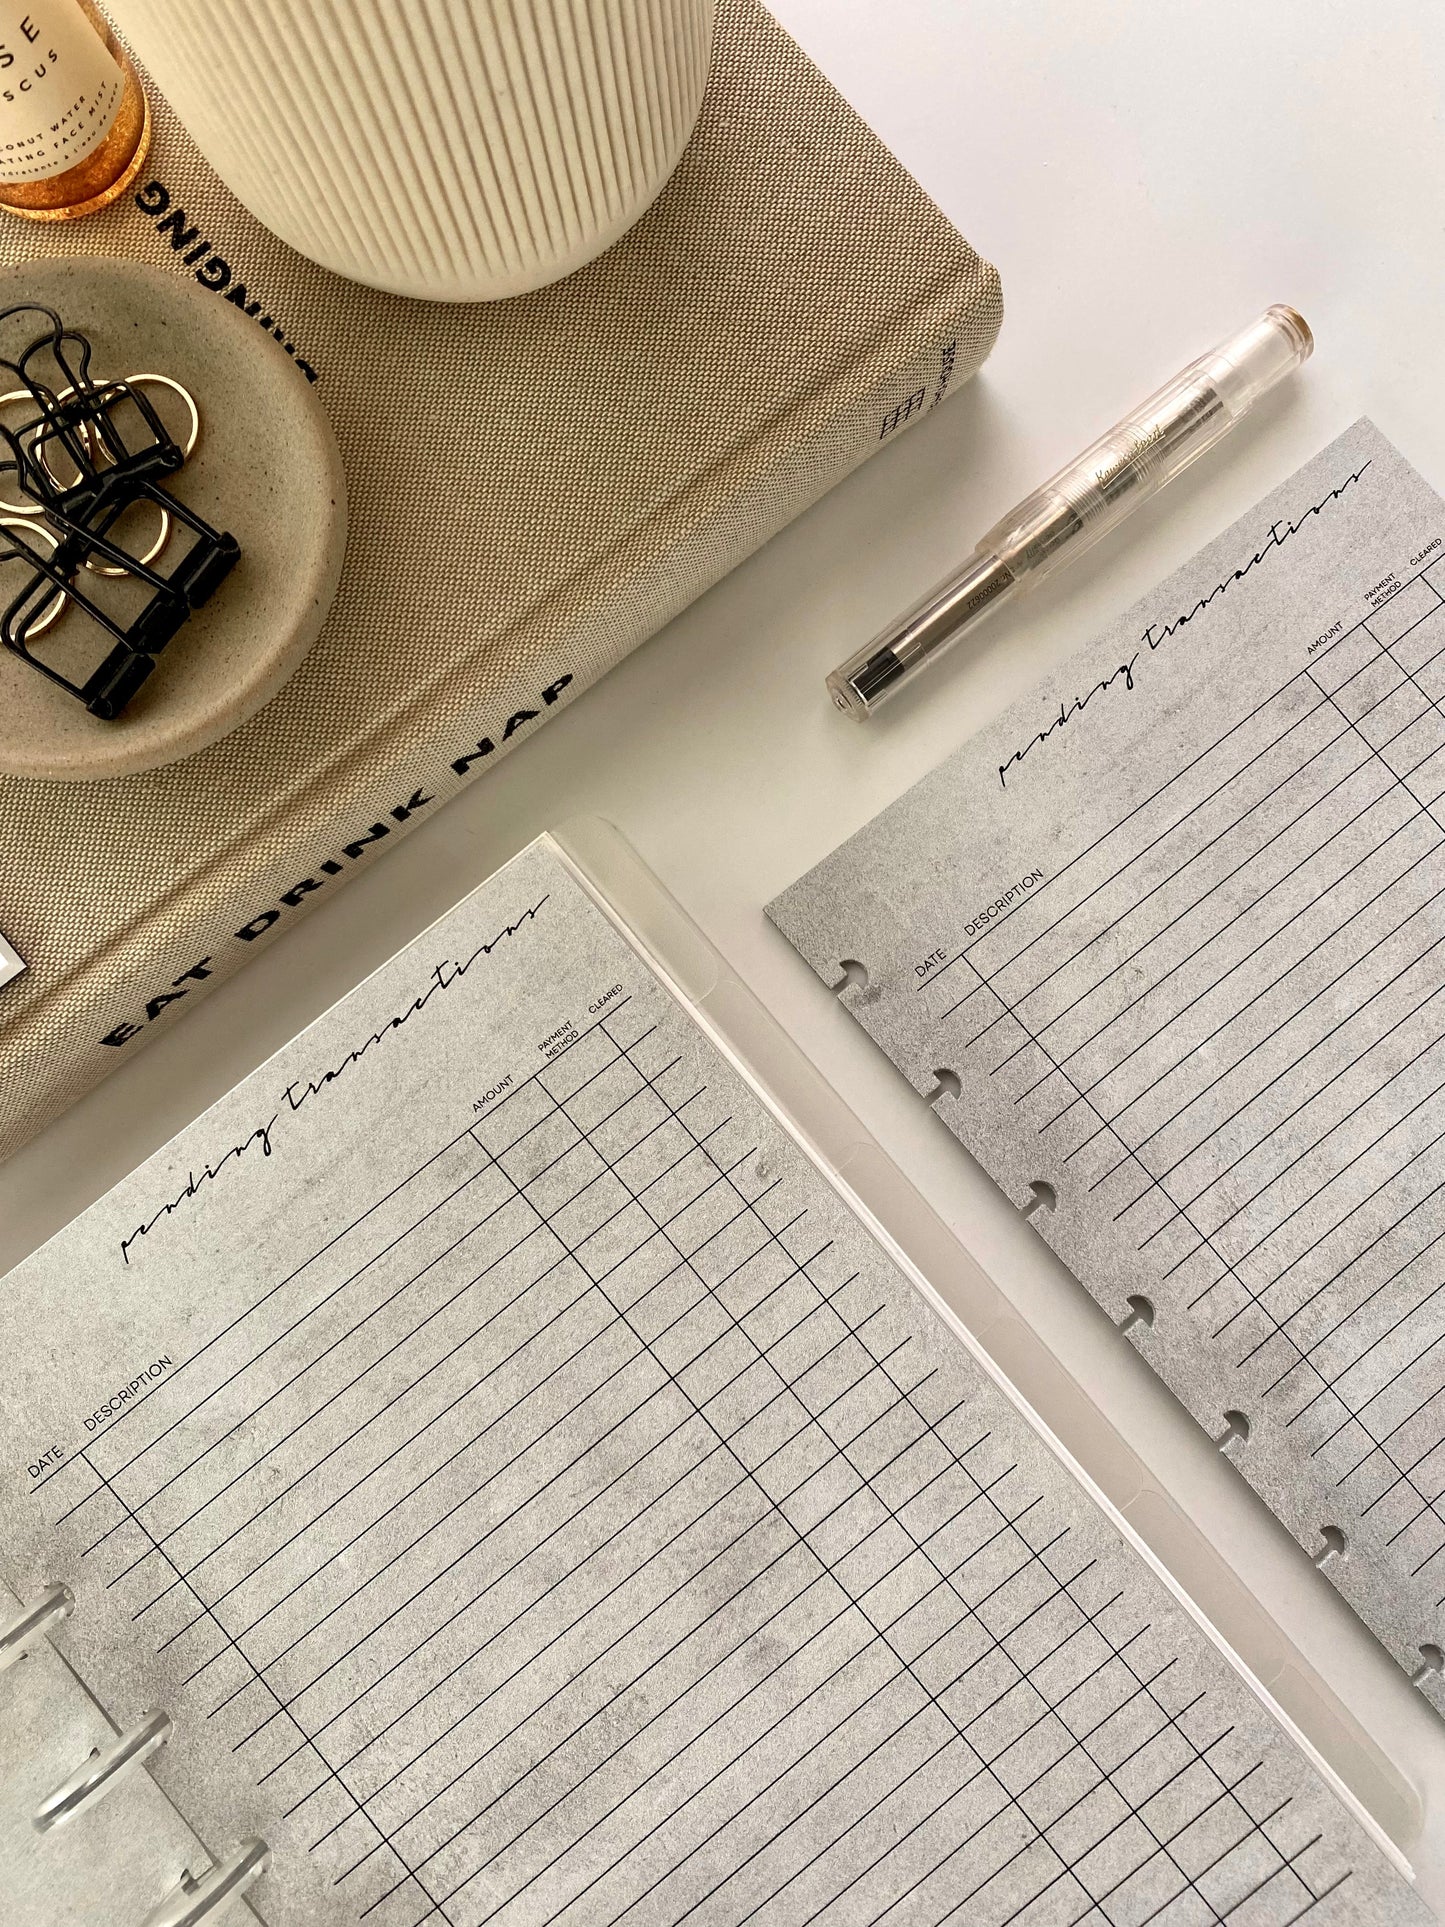 SE
SCUS
CONUT WATER
ATING FACE MIST
ydratante à l'eau de coco
GINGING
EAT DRINK NAP
Kaweco
pending transactions
DATE DESCRIPTION AMOUNT PAYMENT METHOD CLEARED
pending transactions
DATE DESCRIPTION AMOUNT PAYMENT METHOD CLEARED